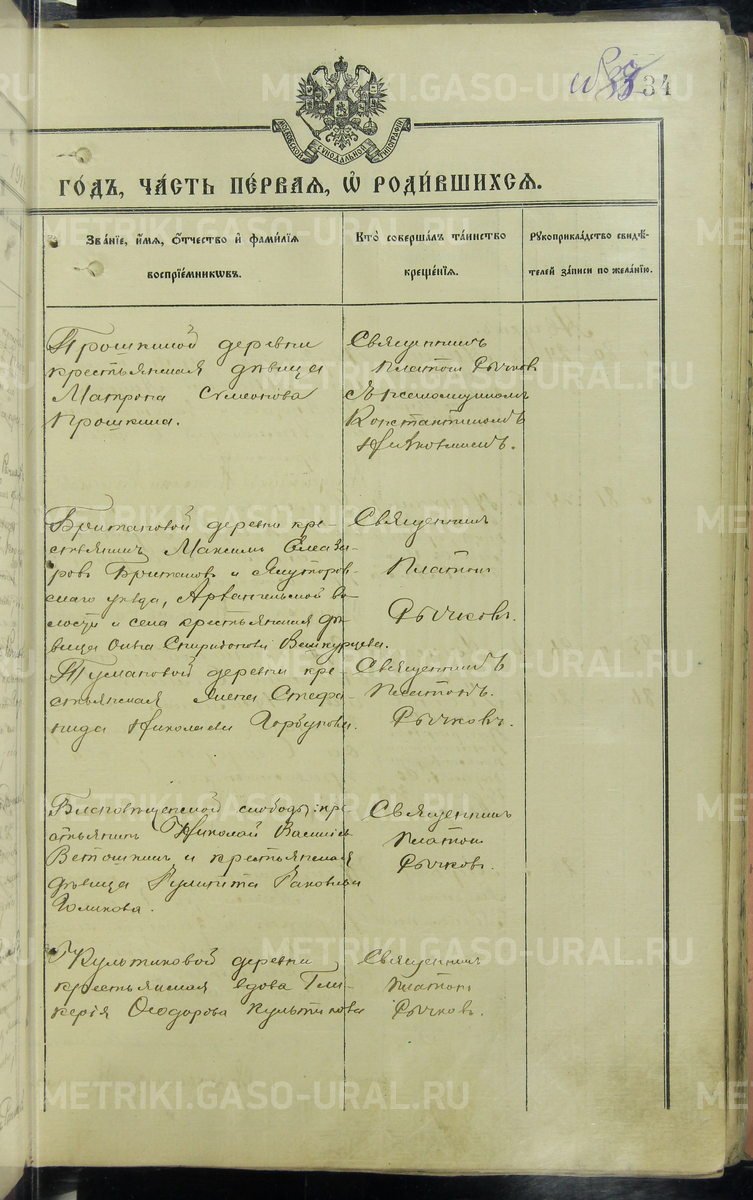 34
МОСКОВСКОЙ СѴНОДАЛЬНОЙ ТИПОГРАФІИ
ГО́ДЪ, ЧА́СТЬ ПЕ́РВАЯ, Ѽ РОДИ́ВШИХСЯ.
Зва́ніе, и҆́мя, ѻ҆́тчество и҆ фами́лія
воспріе́мникѡвъ.
Кто̀ соверша́лъ та́инство
креще́нія.
Рꙋкоприкла́дство свидѣ́-
телей за́писи по жела́нію.
Прошкиной деревни
крестьянская дѣвица
Матрона Симеонова
Прошкина.
Священникъ
Платон Рычков
съ псаломщиком
Константином
Британовой деревни кре-
стьянинъ Максимъ Елеаза-
ровъ Британовъ и Ялуторов-
скаго уѣзда, Архангельской во-
лости и села крестьянская дѣ-
вица Ольга Спиридонова
Священник
Платон
Рычковъ.
Тумановой деревни кре-
стьянская жена Стефа-
нида Николаева Горбунова.
Священникъ
Платонъ
Рычковъ.
Благовѣщенской слободы кре-
стьянин Николай Васильев
Ветошкин и крестьянская
дѣвица
Голикова.
Священник
Платон
Рычков.
Культиковой деревни
крестьянская вдова Гли-
керія Ѳеодорова Культикова
Священник
Платон
Рычков.
METRIKI.GASO-URAL.RU